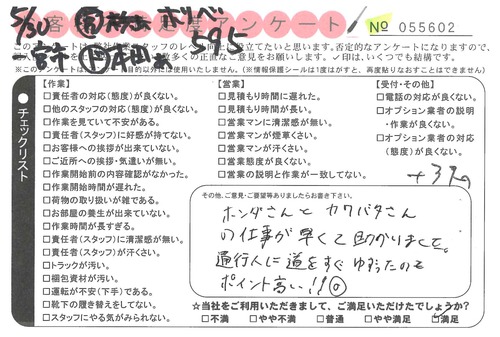 5/30
ホリベ
595
客 足度アンケート
№ 055602
員に役立てたいと思います。否定的なアンケートになりますので、
多くの正直なご意見をお願します。✓印は、いくつでも結構です。
目的以外には使用いたしません。(※情報保護シールは1度はがすと、再度貼りなおすことはできません)
チェックリスト
【作業】
□責任者の対応(態度)が良くない。
□他のスタッフの対応(態度)が良くない。
□作業を見ていて不安がある。
□責任者(スタッフ)に好感が持てない。
□お客様への挨拶が出来ていない。
□ご近所への挨拶・気遣いが無い。
□作業開始前の内容確認がなかった。
□作業開始時間が遅れた。
□荷物の取り扱いが雑である。
□お部屋の養生が出来ていない。
□作業時間が長すぎる。
□責任者(スタッフ)に清潔感が無い。
□責任者(スタッフ)が汗くさい。
□トラックが汚い。
□梱包資材が汚い。
□運転が不安(下手)である。
□靴下の履き替えをしてない。
□スタッフにやる気がみられない。
【営業】
□見積もり時間に遅れた。
□見積もり時間が長い。
□営業マンに清潔感が無い。
□営業マンが煙草くさい。
□営業マンが汗くさい。
□営業態度が良くない。
□営業の説明と作業が一致してない。
【受付・その他】
□電話の対応が良くない。
□オプション業者の説明
・作業が良くない。
□オプション業者の対応
(態度)が良くない。
その他、ご意見・ご要望等ありましたらお書き下さい。
ホンダさんとカワバタさん
の仕事が早くて助かりました。
通行人に道をすぐゆずったのも
ポイント高い!!◎
☆当社をご利用いただきまして、ご満足いただけたでしょうか?
□不満 □やや不満 □普通 □やや満足 ☑満足